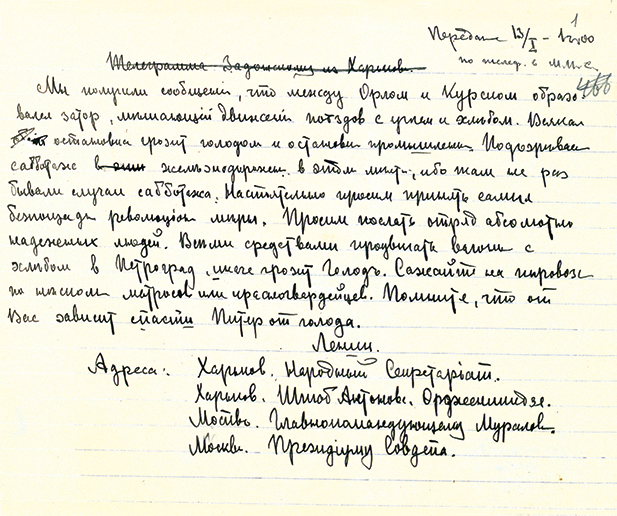 Передана 13/I – 12.00
по телеф. в М.П.С.
Телеграмма Задонскому из Харькова.
466
Мы получили сообщения, что между Орлом и Курском образо
вался затор, мешающій движенію поѣздов с углем и хлѣбом. Всякая
остановка грозит голодом и остановк промышленн. Подозрѣваем
сабботаж в жел­ѣзнодорожн. в этом мѣстѣ, ибо там не раз
бывали случаи сабботажа. Настоятельно просим принять самыя
безпощадн революціон мѣры. Просим послать отряд абсолютно
надежных людей. Всѣми средствами продвигать вагоны с
хлѣбом в Петроград, иначе грозит голодъ. Сажайте на паровозы
по нѣскольк матросов или красногвардейцев. Помните, что от
Вас зависит спасти Питер от голода.
Ленин.
Адреса: Харьков. Народный Секретаріат.
Харьков. Штаб Антонова. Орджоникидзе.
Москва. Главнокомандующему Муралов.
Москва. Президіуму Совдепа.